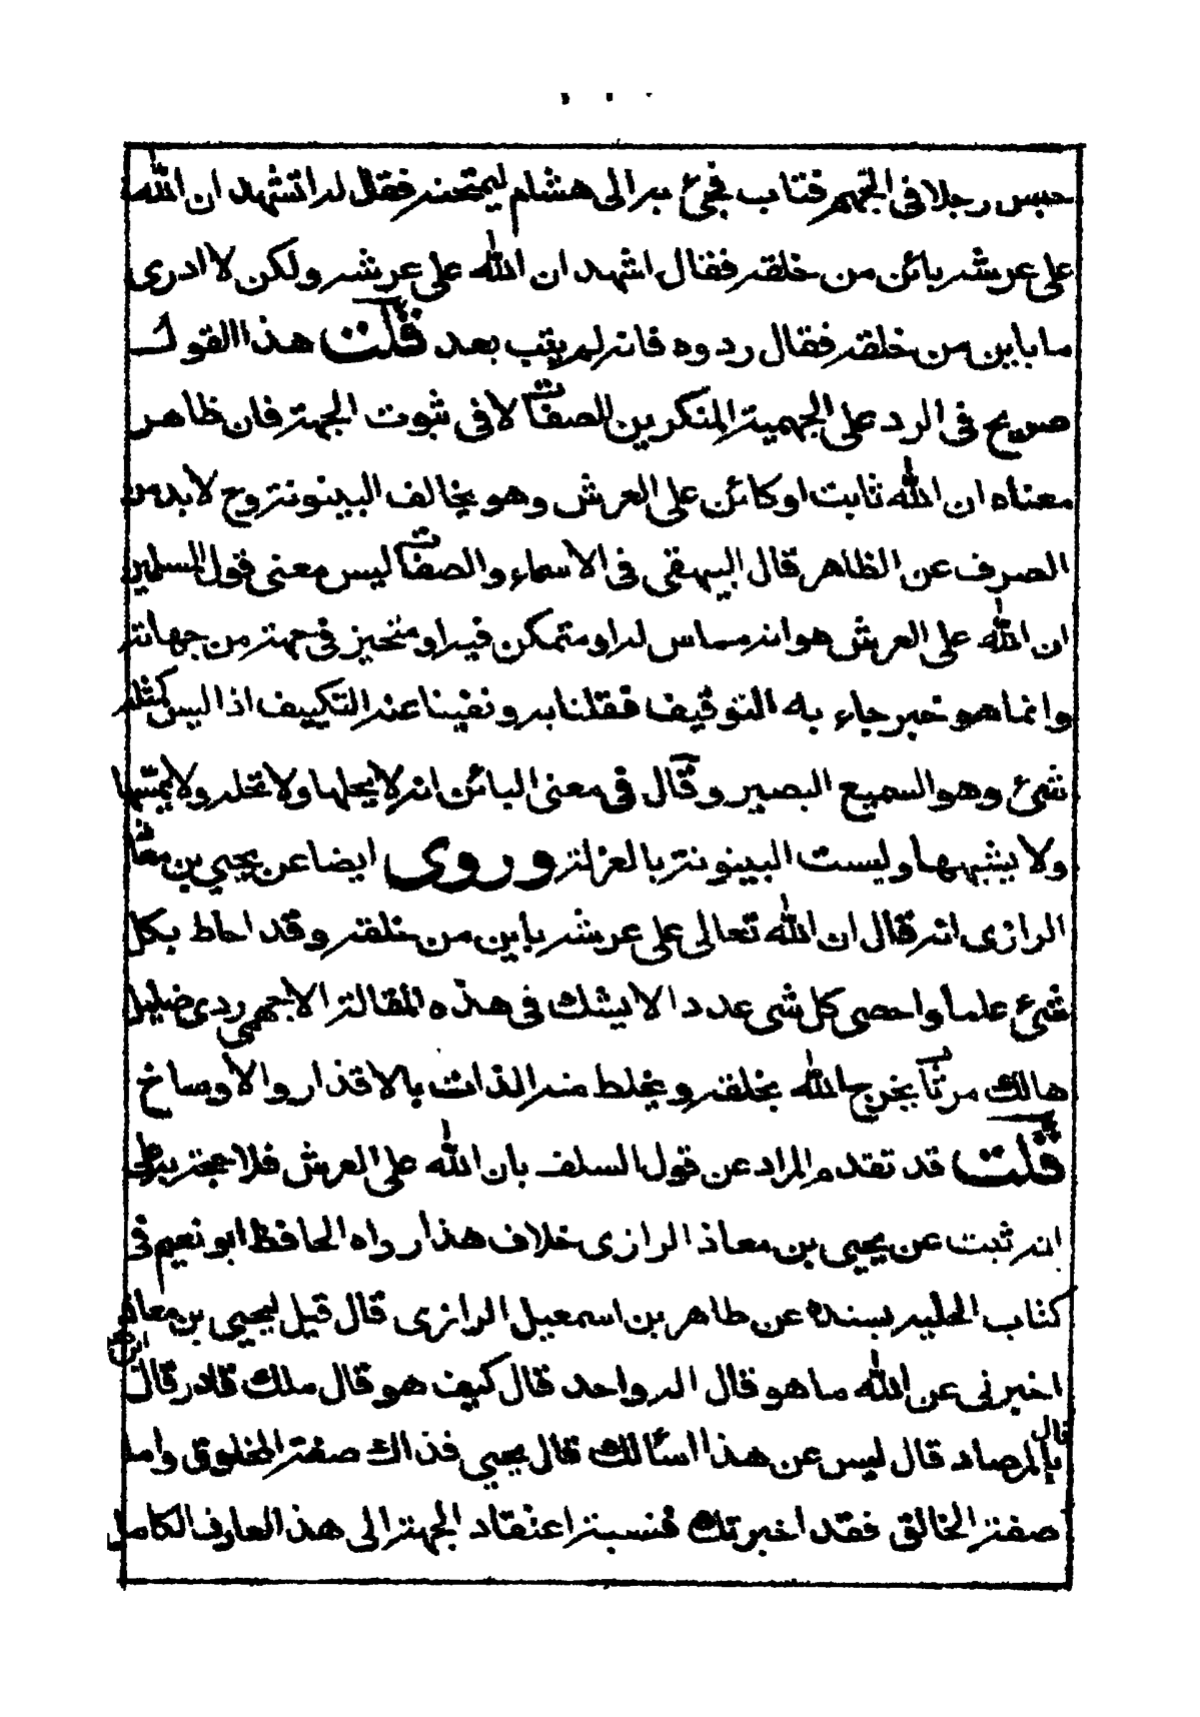 حبس رجلا فى التجهم فتاب فجئ به الى هشام ليمتحنه فقال له اتشهد ان الله
على عرشه بائن من خلقه فقال اشهد ان الله على عرشه ولكن لا ادرى
ما باين من خلقه فقال ردوه فانه لم يتب بعد قلت هذا القول
صريح فى الرد على الجهمية المنكرين للصفات لا فى ثبوت الجهة فان ظاهر
معناه ان الله ثابت او كائن على العرش وهو يخالف البينونة وح لا بد من
الصرف عن الظاهر قال البيهقى فى الاسماء والصفات ليس معنى قول المسلمين
ان الله على العرش هو انه مماس له او متمكن فيه او متحيز فى جهة من جهاته
وانما هو خبر جاء به التوقيف فقلنا به ونفينا عنه التكييف اذ ليس كمثله
شئ وهو السميع البصير وقال فى معنى البائن انه لا يحلها ولا تحله ولا يمسها
ولا يشبهها وليست البينونة بالعزلة وروى ايضا عن يحيى بن معاذ
الرازى انه قال ان الله تعالى على عرشه باين من خلقه وقد احاط بكل
شئ علما واحصى كل شى عددا لا يشك فى هذه المقالة الا جهمى ردى ضليل
هالك مرتاب يخرج الله بخلقه ويخلط منه الذات بالاقذار والاوساخ
قلت قد تقدم المراد عن قول السلف بان الله على العرش فلا حجة به على
انه ثبت عن يحيى بن معاذ الرازى خلاف هذا رواه الحافظ ابو نعيم فى
كتاب الحليه بسنده عن طاهر بن اسمعيل الرازى قال قيل ليحيى بن معاذ
اخبرنى عن الله ما هو قال اله واحد قال كيف هو قال ملك قادر قال اين هو
قال بالمرصاد قال ليس عن هذا اسألك قال يحيى فذاك صفة المخلوق واما
صفة الخالق فقد اخبرتك فنسبة اعتقاد الجهة الى هذ العارف الكامل